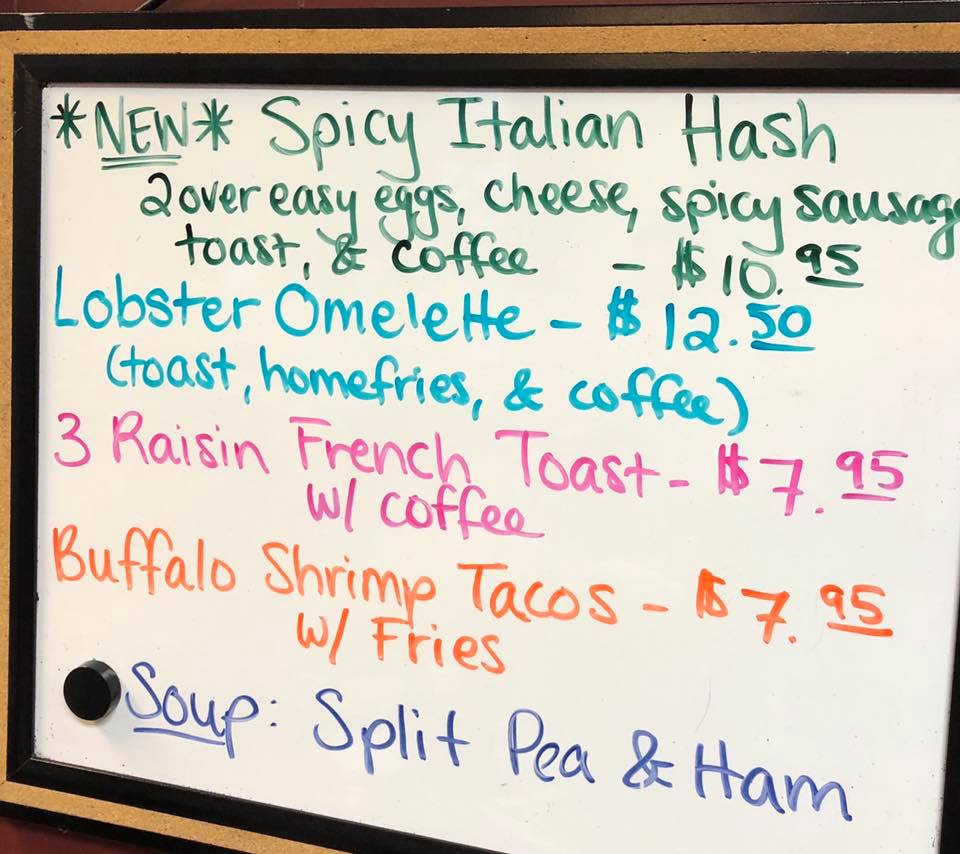 *NEW* Spicy Italian Hash
2 over easy eggs, cheese, spicy sausage
toast, & coffee - $10.95
Lobster Omelette - $12.50
(toast, homefries, & coffee)
3 Raisin French Toast - $7.95
w/ coffee
Buffalo Shrimp Tacos - $7.95
w/ Fries
Soup: Split Pea & Ham